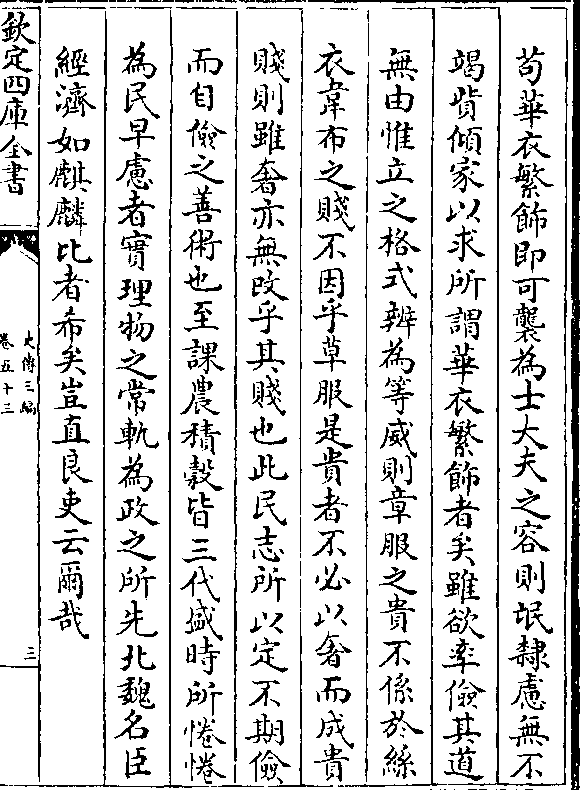 苟華衣繁飾即可襲為士大夫之容則氓隸慮無不
竭貲傾家以求所謂華衣繁飾者矣雖欲率儉其道
無由惟立之格式辨為等威則章服之貴不係於絲
衣韋布之賤不因乎草服是貴者不必以奢而成貴
賤則雖奢亦無改乎其賤也此民志所以定不期儉
而自儉之善術也至課農積榖皆三代盛時所惓惓
為民早慮者實理物之常軌為政之所先北魏名臣
經濟如麒麟比者希矣豈直良吏云爾哉
欽定四庫全書
史傳三編
卷五十三
三